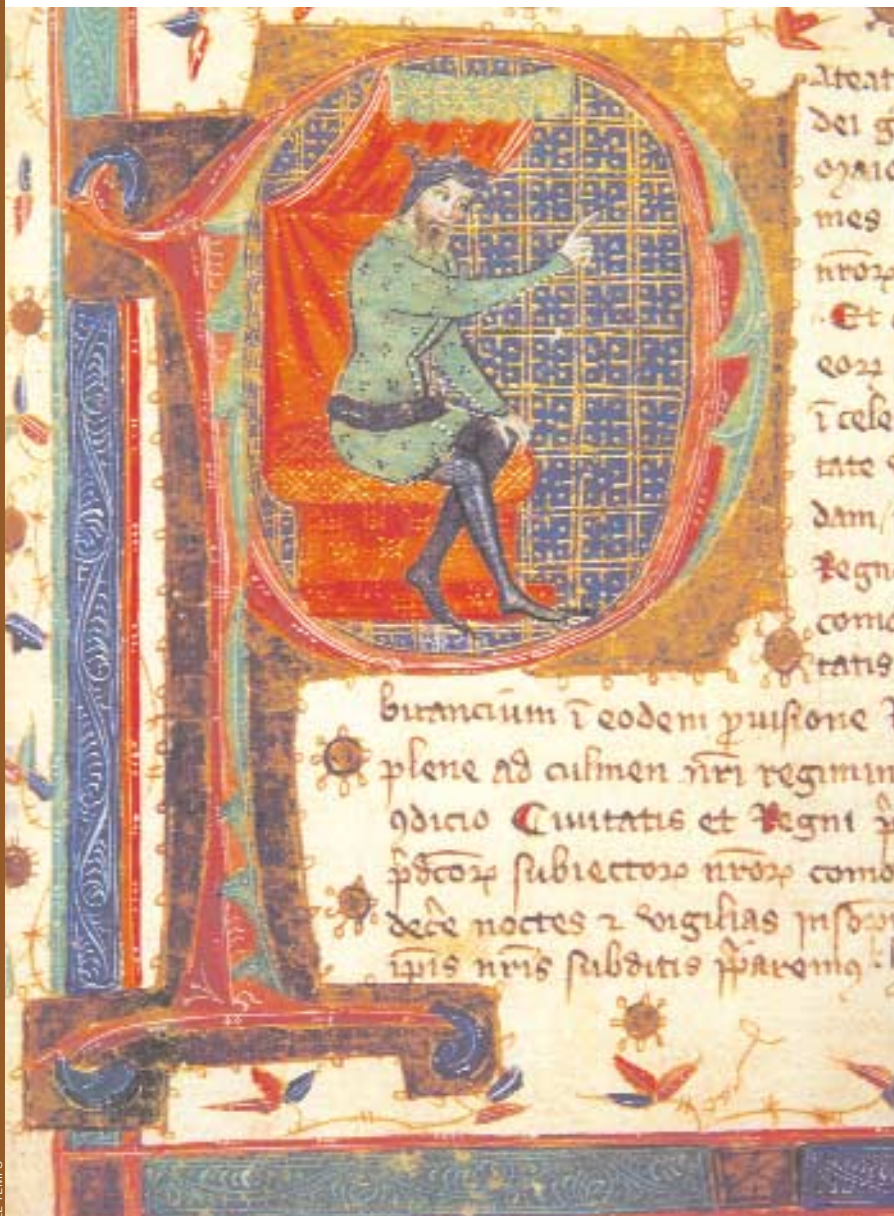 P
Ateat
dei g
mes
nroꝝ
Et
eoꝝ
ī cele
tate
dam
Regn
como
tatis
bitancium ī eodem ꝓuisione
plene ad culmen nr̄i regimin
ꝯdicio Ciuitatis et Regni p̄
p̄dc̄oꝝ subiectoꝝ nr̄oꝝ como
noctes ⁊ vigilias
ip̄is nr̄is subditis p̄paremꝰ